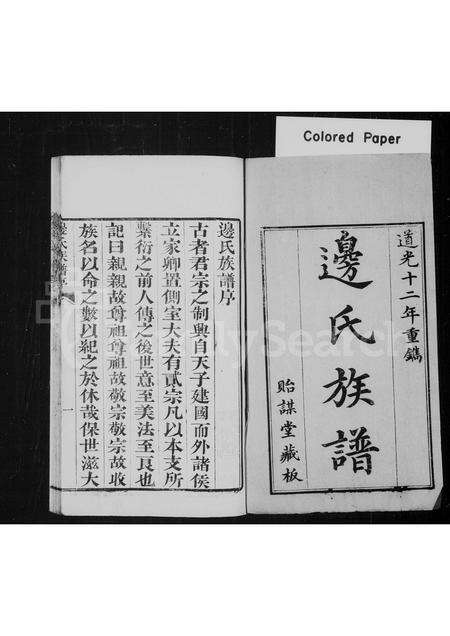 Colored Paper
道光十二年重鐫
邊氏族譜
貽謀堂藏板
邊氏族譜序
古者君宗之制興自天子建國而外諸侯
立家卿置側室大夫有貳宗凡以本支所
繫衍之前人傳之後世意至美法至良也
記曰親親故尊祖尊祖故敬宗敬宗故收
族名以命之數以紀之於休哉保世滋大
一
FamilySearch